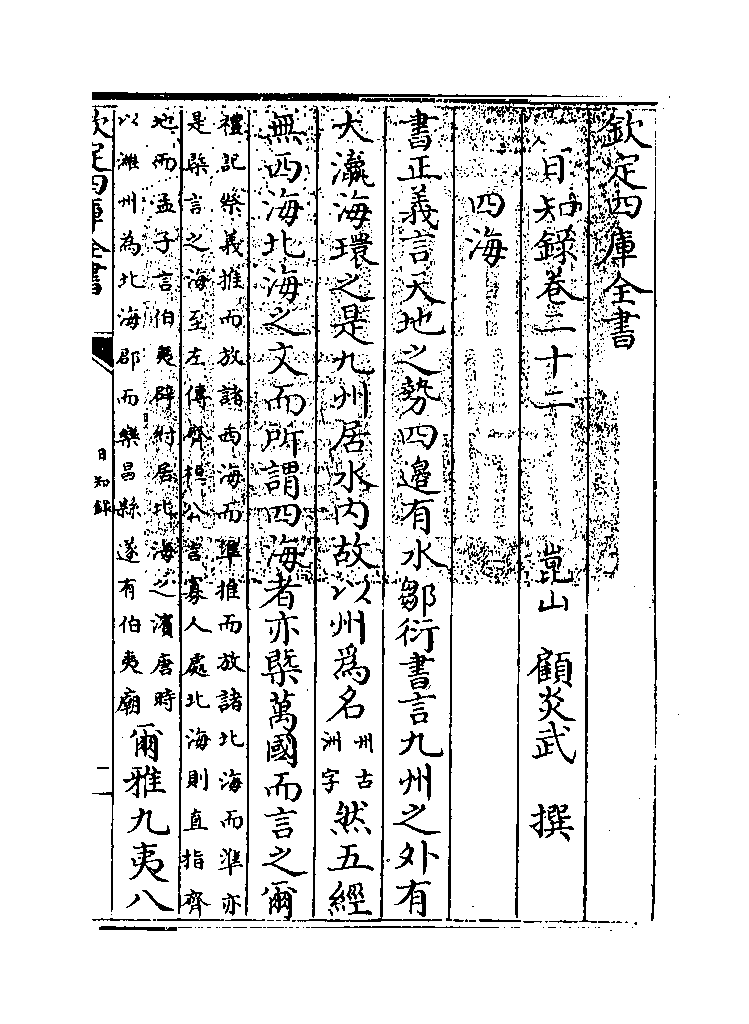 欽定四庫全書
日知錄卷二十二 崑山 顧炎武 撰
四海
書正義言天地之勢四邊有水鄒衍書言九州之外有
大瀛海環之是九州居水内故以州爲名州古洲字然五經
無西海北海之文而所謂四海者亦槩萬國而言之爾
禮記祭義推而放諸西海而準推而放諸北海而準亦
是槩言之海至左傳齊桓公言寡人處北海則直指齊
地而孟子言伯夷辟紂居北海之濱唐時
以濰州為北海郡而樂昌縣遂有伯夷廟爾雅九夷八
欽定四庫全書 日知錄